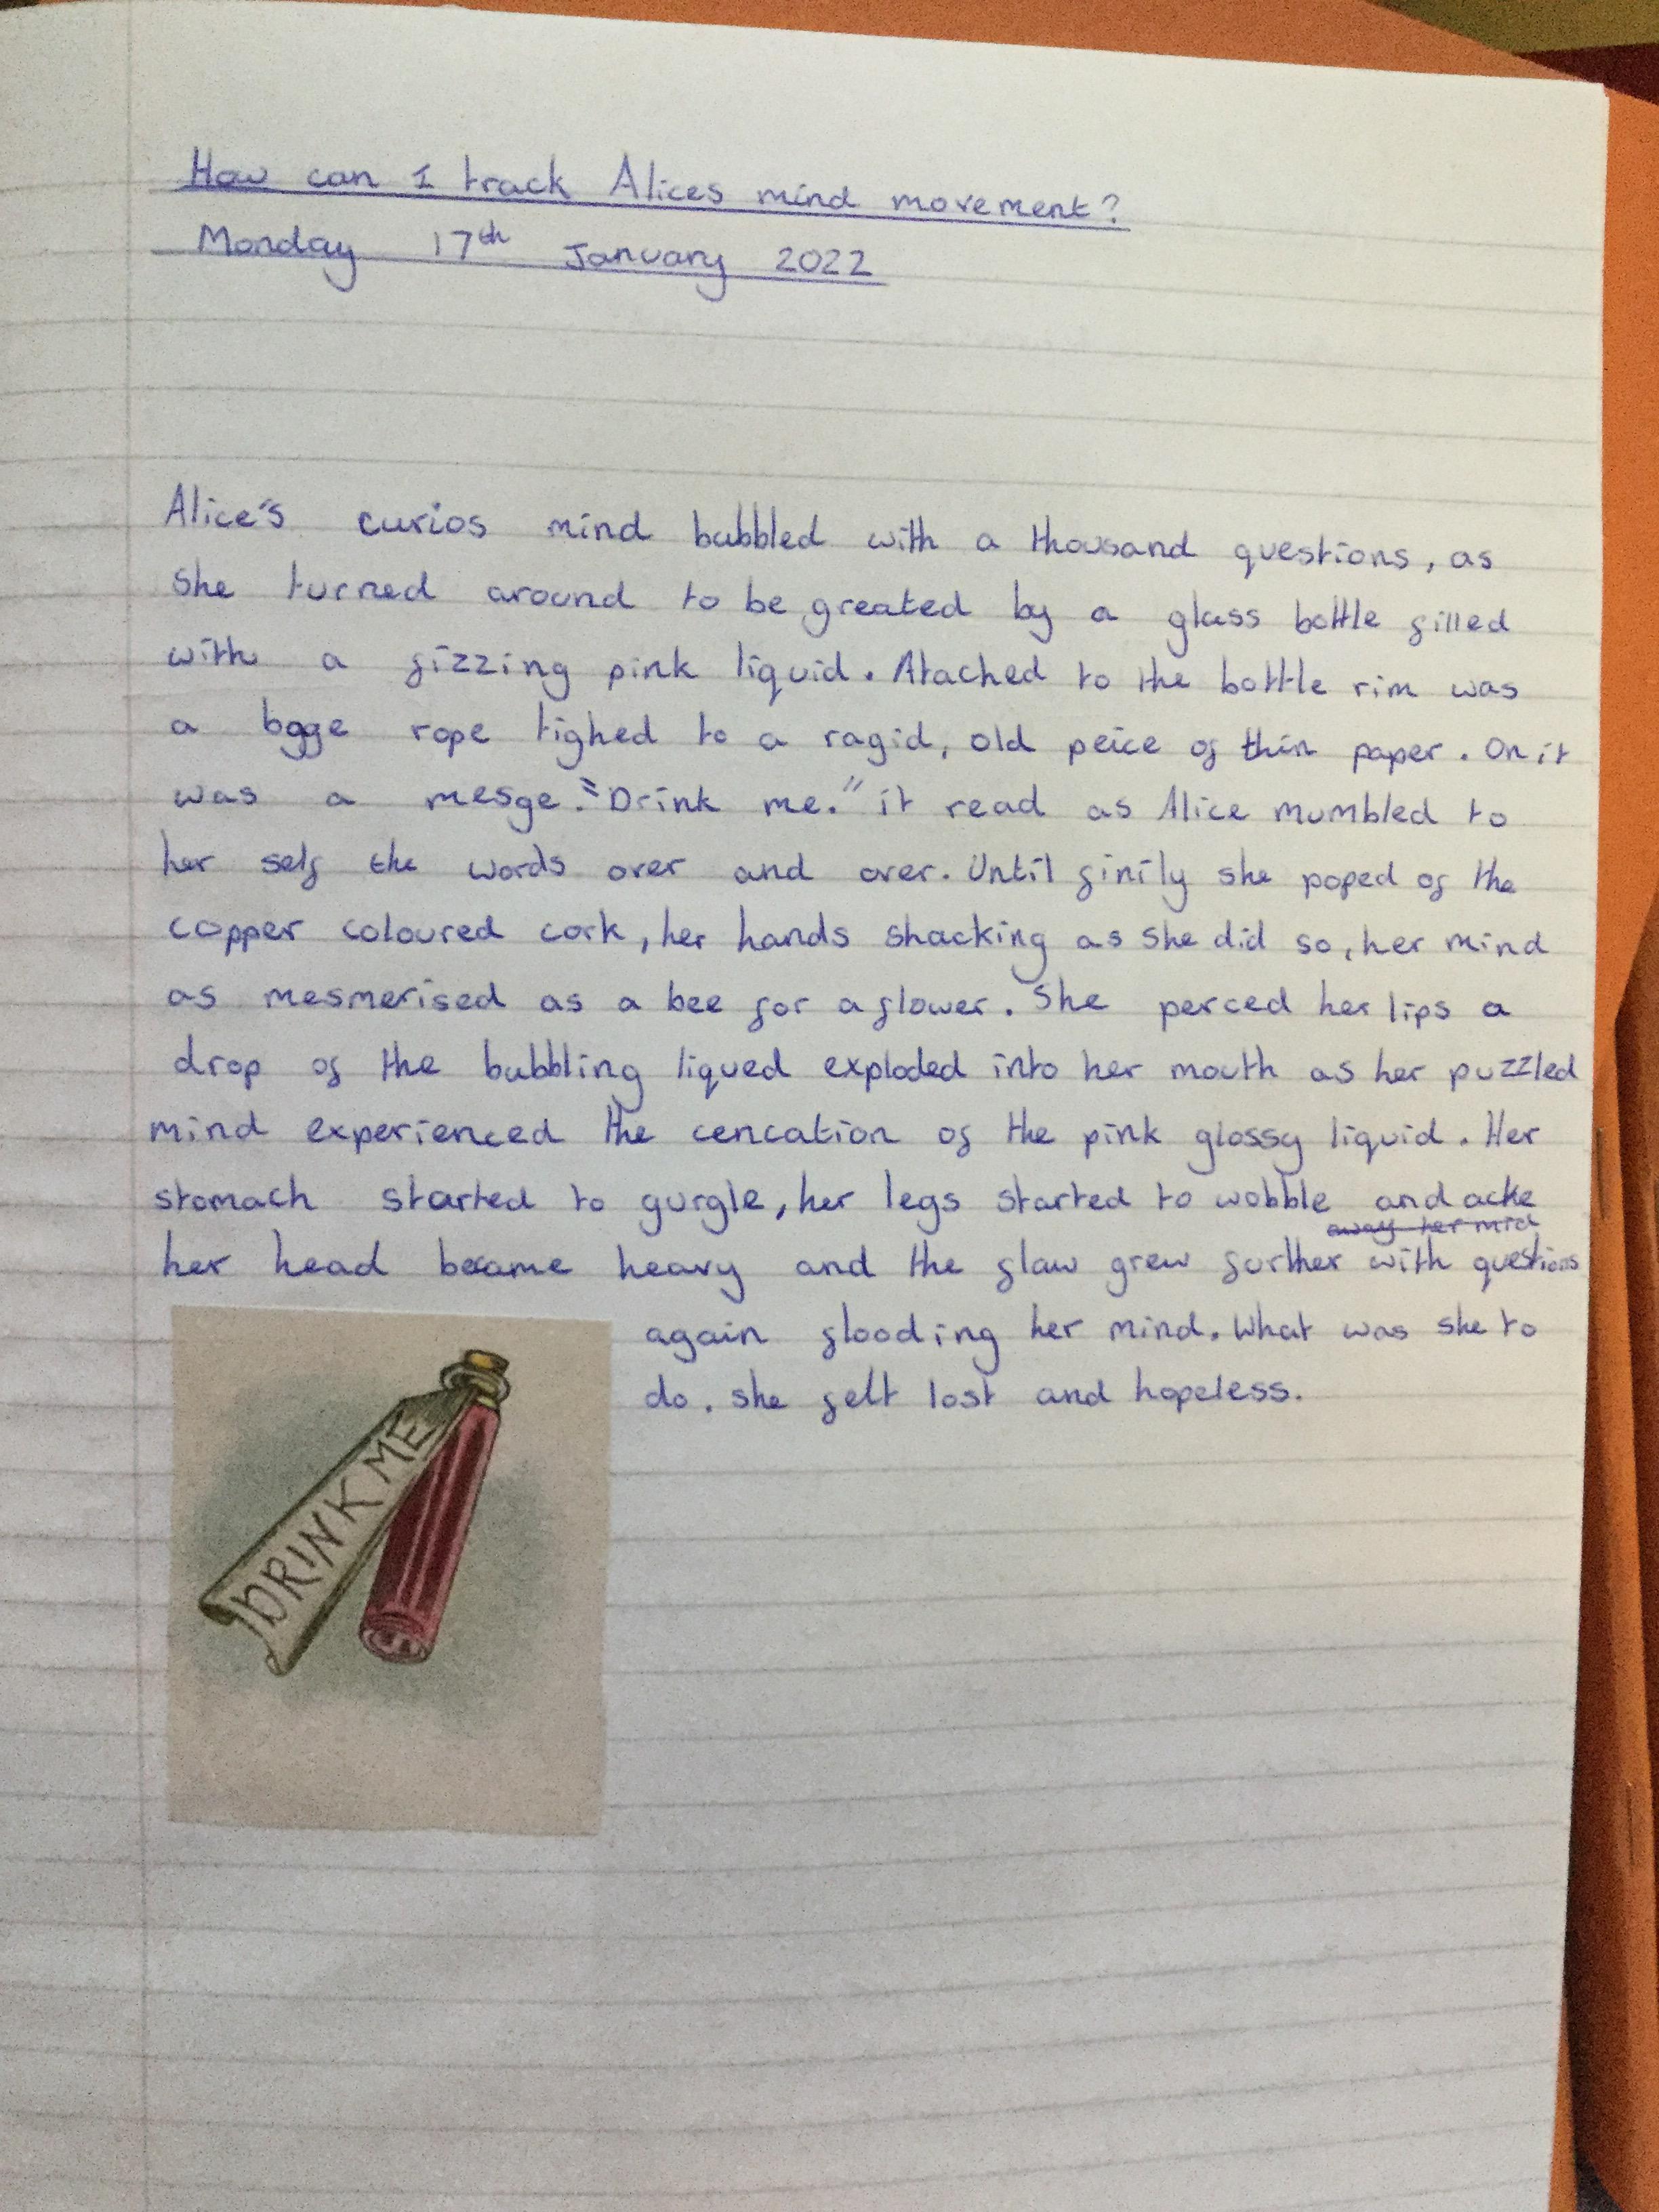 How can I track Alices mind movement?
Monday 17th January 2022
Alice's curios mind bubbled with a thousand questions, as
she turned around to be greated by a glass bottle filled
with a fizzing pink liquid. Atached to the bottle rim was
a bgge rope tighed to a ragid, old peice of thin paper. On it
was a mesge. "Drink me." it read as Alice mumbled to
her self the words over and over. Until finily she poped of the
copper coloured cork, her hands shacking as she did so, her mind
as mesmerised as a bee for a flower. She perced her lips a
drop of the bubbling liqued exploded into her mouth as her puzzled
mind experienced the cencation of the pink glossy liquid. Her
stomach started to gurgle, her legs started to wobble and acke
away her mid
her head became heavy and the flaw grew further with questions
again flooding her mind. What was she to
do. she felt lost and hopeless.
DRINK ME